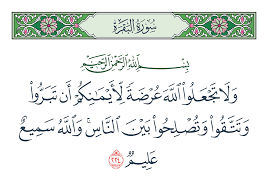 سُورَةُ البَقَرَةِ
بِسْمِ ٱللَّهِ ٱلرَّحْمَٰنِ ٱلرَّحِيمِ
وَلَا تَجْعَلُوا۟ ٱللَّهَ عُرْضَةً لِّأَيْمَٰنِكُمْ أَن تَبَرُّوا۟
وَتَتَّقُوا۟ وَتُصْلِحُوا۟ بَيْنَ ٱلنَّاسِ ۗ وَٱللَّهُ سَمِيعٌ
عَلِيمٌ ٢٢٤